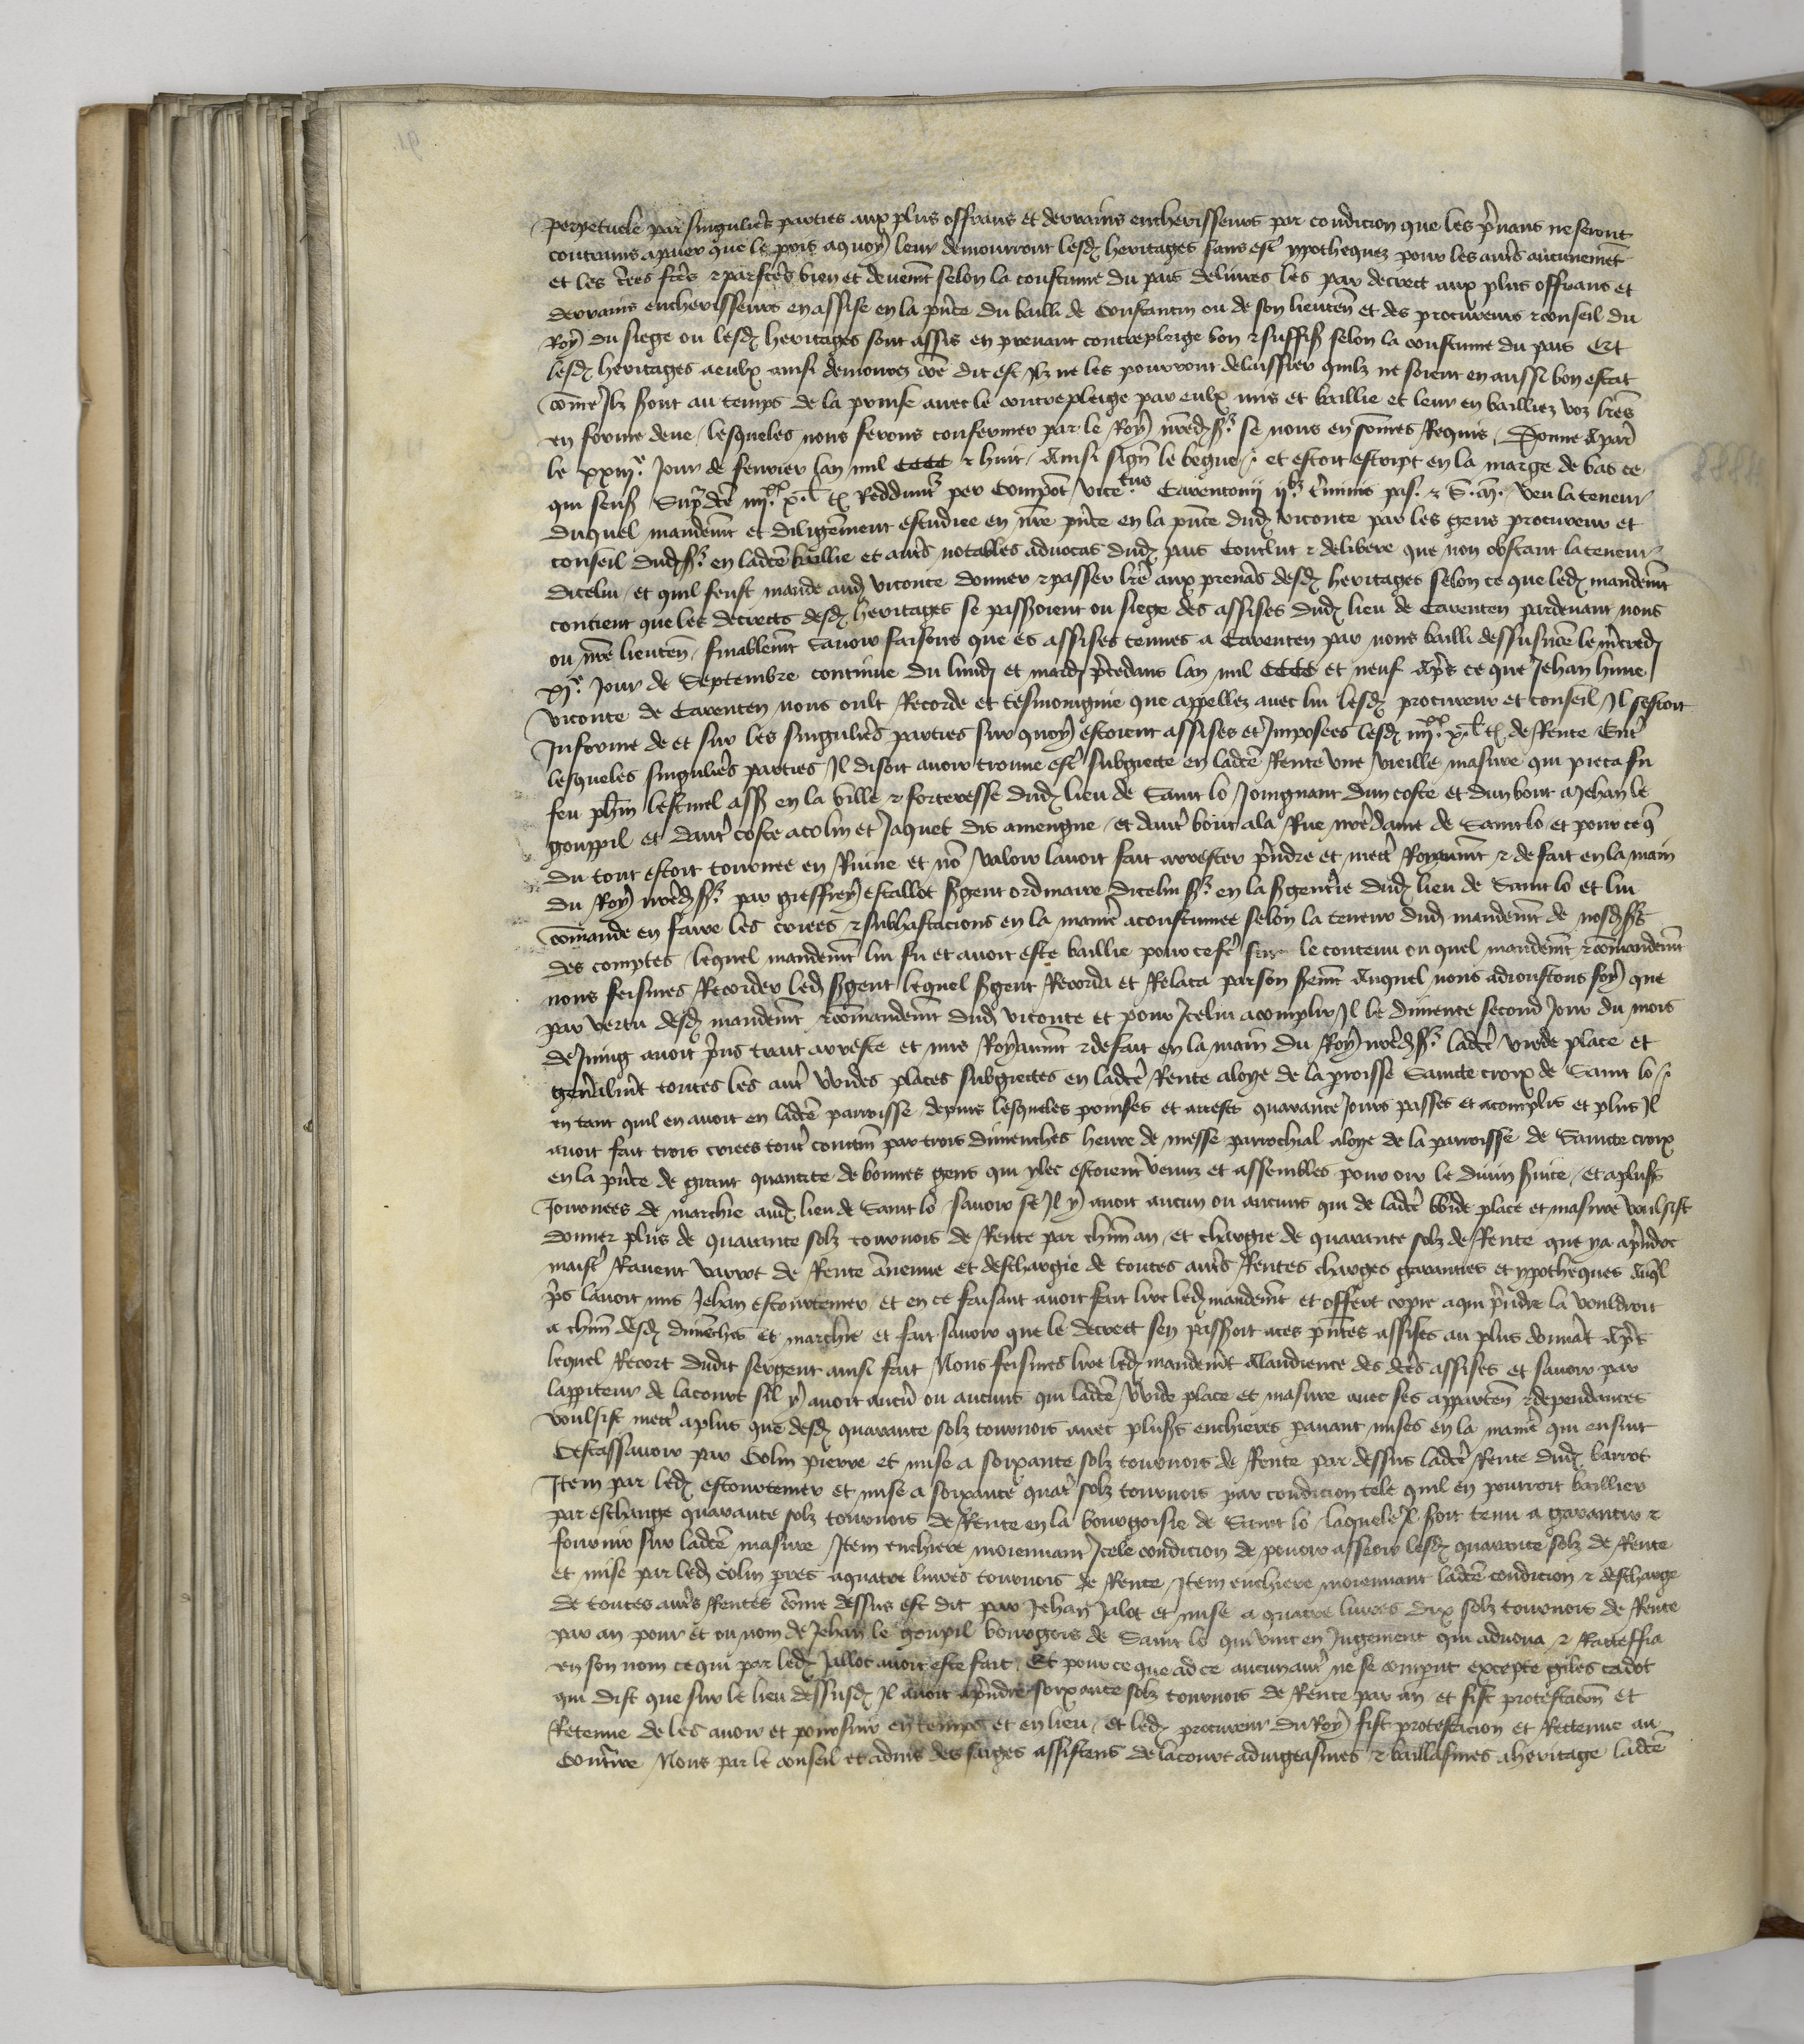 perpetuele par singulieres parties aux plus offrans et derrains encherisseurs par condicion que les p̃nans ne seront
contrains apaier que le pris aquoy leur demourront lesd. heritages sans est̃ ypothequez pour les aut̃s aucunemẽt
et les c̃rees fc̃tes ⁊ parfc̃tes bien et deuemt̃ selon la coustume du pais deliurez les par decrect aux plus offrans et
derrains encherisseurs en assise en la pñce du bailli de Constantin ou de son lieuteñ et des procureurs ⁊ conseil du
Roy du siege ou lesd. heritages sont assis en prenant contrepleige bon ⁊ suffis̃ selon la coustume du pais Et
lesd. heritages aeulx ainsi demourez com̃e dit est Ilz ne les pourront delaissier quilz ne soient en aussi bon estat
com̃e Ilz sont au temps de la prinse auec le contrepleige par eulx mis et baillie et leur en bailliez voz lr̃es
en forme deue / lesqueles nous ferons confermer par le Roy nr̃ed. sr̃. se nous en som̃es Requis / Donne a par̃
le xxiiie. Jour de feurier lan mil cccc ⁊ huit / Ainsi signe le begue / et estoit escript en la marge de bas ce
qui sensᷤ Sup̃ dc̃e iiiixx. x. l. t. Redduntᷣ per Compot̃ vicecomitatus Carentonii t̃minis pas. ⁊ S. m̃. Veu la teneur
duquel mandemt̃ et diligẽment estudiee en nr̃e pñce en la pñce dud. viconte par les gens procureur et
conseil dud. sr̃. en ladc̃e baillie et aut̃s notables aduocas dud. pais Conclut ⁊ delibere que non obstant la teneur
dicelui / et quil feust mande aud. viconte donner ⁊ passer lr̃e aux prenãs desd. heritages selon ce que led. mandemt̃
contient que les decrects desd. heritages se passeroient ou siege des assises dud. lieu de Carenten pardeuant nous
ou nr̃e lieuteñ / finablemt̃ Sauoir faisons que es assises tenues a Carenten par nous bailli dessusnõe le mc̃red.
xie. Jour de Septembre continue du lundi et mardi p̃cedans lan mil cccc et neuf Ap̃s ce que Jehan hune
viconte de Carenten nous oult Recorde et tesmoingnie que appellez auec lui lesd. procureur et conseil Il sestoit
Informe de et sur les singulier̃s parties sur quoy estoient assises et Imposees lesd. iiiixx. x. l. t. de Rente Ent̃
lesqueles singulier̃s parties Il disoit auoir trouue est̃ subgiecte en ladc̃e Rente vne vieille masure qui pieca fu
feu ph̃in lescuiel ass̃ en la ville ⁊ forteresse dud. lieu de Saint lo Joingnant dun coste et dun bout a Jehan le
gouppil et daut̃ coste acolin et Jaquet dis amengne / et daut̃ bout ala Rue nr̃e dame de Saint lo et pour ce q̃
du tout estoit tournee en Ruine et nõ valoir lauoit fait arrester p̃ndre et mect̃ Royaumt̃ ⁊ de fait en la main
du Roy nr̃ed. sr̃. par gieffrey escallot s̃gent ordinaire dicelui sr̃. en la s̃gent̃ie dud. lieu de Saint lo et lui
com̃ande en faire les criees ⁊ subhastacions en la manier̃ acoustumee selon la teneur dud. mandemt̃ de nosd. srs̃
des comptes / lequel mandemt̃ lui fu et auoit este baillie pour ce fẽ sur le contenu ou quel mandemt̃ ⁊ com̃andemt̃
nous feismes Recorder led. s̃gent lequel s̃gent Recorda et Relata par son s̃emt̃ Auquel nous adioustons foy que
par vertu desd. mandemt̃ ⁊ com̃andemt̃ dud. viconte et pour Icelui acomplir Il le dimence second Jour du mois
de Juing auoit p̃ns trait arreste et mis Royaumt̃ ⁊ de fait en la main du Roy nr̃ed. sr̃. ladc̃e vuide place et
gen̄alemt̃ toutes les aut̃ vuides places subgiectes en ladc̃e Rente aloye de la p̃roisse Saincte croix de Saint lo
en tant quil en auoit en ladc̃e parroisse / depuis lesqueles prinses et arrests quarante Jours passes et acomplis et plus Il
auoit fait trois criees tout̃ contiñ par trois dimenches heure de messe parrochial aloye de la parroisse de Saincte croix
en la pñce de grant quantite de bonnes gens qui ylec estoient venuz et assembles pour oir le diuin s̃uice / et aplusrs̃
Journees de marchie aud. lieu de Saint lo Sauoir se Il y auoit aucun ou aucuns qui de ladc̃e vuide place et masure voulsist
donner plus de quarante solz tournois de Rente par chũn an / et chargie de quarante solz de Rente que ya ap̃ndre
maist̃ Rauent varrot de Rente ãnienne et deschargie de toutes aut̃s Rentes charges garanties et ypotheques Auq̃l
p̃s lauoit mis Jehan escourtemer / et en ce faisant auoit fait lire led. mandemt̃ et offert copie aqui p̃ndre la vouldroit
a chũn desd. dimẽches et marchie et fait sauoir que le decrect sen passeroit aces pñtes assises au plus donnãt Ap̃s
lequel Recort dudit sergent ainsi fait Nous feismes lire led. mandemt̃ alaudience des dc̃es assises et sauoir par
lappiteur de lacourt sil y auoit aucũ ou aucuns qui ladc̃e vuide place et masure auec ses apparteñ ⁊ dependances
voulsist mect̃ aplus que desd. quarante solz tournois auec plusrs̃ enchieres pauant mises en la manier̃ qui ensuit
Cestassauoir par Colin pierre et mise a soixante solz tournois de Rente par dessus ladc̃e Rente dud. barrot
Item par led. escourtemer et mise a soixante quat̃ solz tournois par condicion tele quil en pourroit baillier
par eschange quarante solz tournois de Rente en la bourgoisie de Saint lo laquele Il soit tenu a garantir ⁊
fournir sur ladc̃e masure Item enchiere moiennant Icele condicion de pouoir asseoir lesd. quarante solz de Rente
et mise par led. colin pres aquatre liures tournois de Rente Item enchiere moiennant ladc̃e condicion ⁊ descharge
de toutes aut̃s Rentes com̃e dessus est dit par Jehan Jalot et mise a quatre liures dix solz tournois de Rente
par an pour et ou nom de Jehan le goupil bourgois de Saint lo qui vint en Jugement qui aduoua ⁊ Ratteffia
en son nom ce qui par led. Jallot auoit este fait / Et pour ce que ad ce aucun aut̃ ne se comput excepte giles cadot
qui dist que sur le lieu dessusd. Il auoit ap̃ndre soixante solz tournois de Rente par an et fist protestacoñ et
Retenue de les auoir et poursuir en temps et en lieu / et led. procureur du Roy fist protestacion et Rectenue au
Cont̃ire Nous par le conseil et aduis des saiges assistens de lacourt adiugeasmes ⁊ baillasmes aheritage ladc̃e